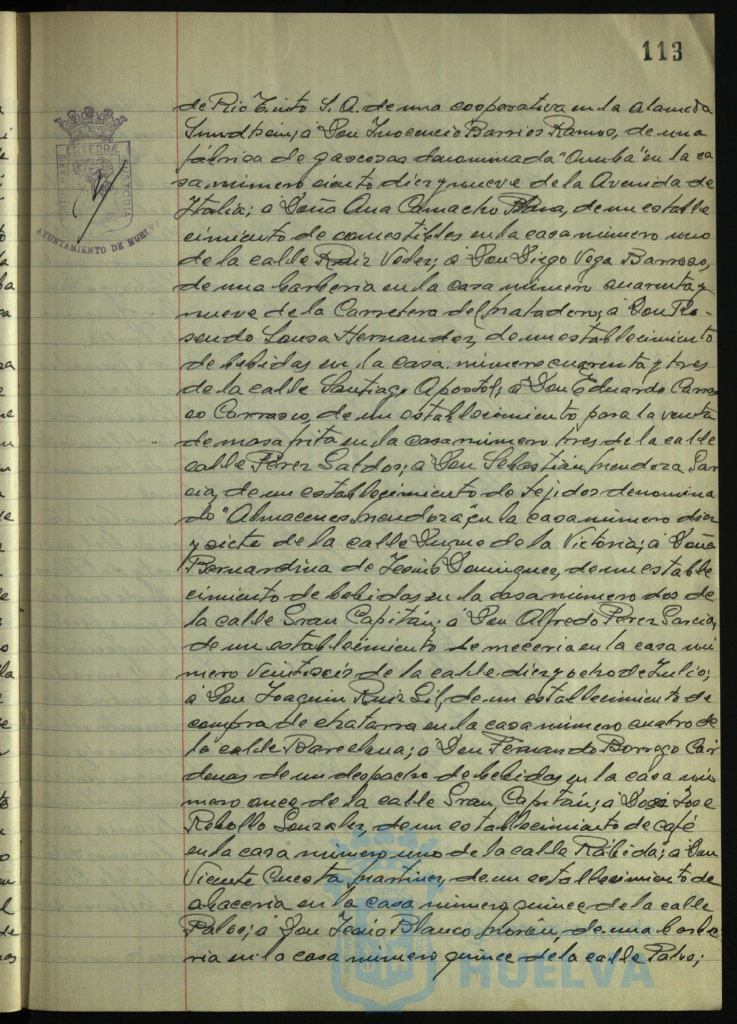 113
de Rio Tinto S. A. de una cooperativa en la alameda
Sundheim; a Don Inocencio Barrios Ramos, de una
fábrica de gaseosas denominada "Onuba" en la ca
sa numero ciento diez y nueve de la Avenida de
Italia; a Doña Ana Camacho, de un estable
cimiento de comestibles en la casa numero uno
de la calle Ruiz Velez; a Don Diego Vega Barroso,
de una barberia en la casa numero cuarenta y
nueve de la Carretera del matadero; a Don Ro-
sendo Sousa Hernandez, de un establecimiento
de bebidas en la casa numero cuarenta y tres
de la calle Santiago Apostol; a Don Eduardo Carras
co Carrasco, de un establecimiento para la venta
de masa frita en la casa numero tres de la calle
calle Pérez Galdos; a Don Sebastián Mendoza Gar
cia, de un establecimiento de tejidos denomina
do "Almacenes Mendoza", en la casa numero diez
y siete de la calle Duque de la Victoria; a Doña
Bernardina de Jesús Dominguez, de un estable
cimiento de bebidas en la casa numero dos de
la calle Gran Capitán; a Don Alfredo Perez Garcia,
de un establecimiento de meceria en la casa nú
mero veintiseis de la calle diez y ocho de Julio;
a Don Joaquin Ruiz Gil, de un establecimiento de
compra de chatarra en la casa numero cuatro de
la calle Barcelona; a Don Fernando Borrego Car
denas de un despacho de bebidas en la casa nú
mero once de la calle Gran Capitán; a Don Jose
Rebollo Gonzalez, de un establecimiento de café
en la casa numero uno de la calle Rábida; a Don
Vicente Cuesta Martinez, de un establecimiento de
abaceria en la casa numero quince de la calle
Palos; a Don Jesús Blanco Morán, de una barbe
ria en la casa numero quince de la calle Palos;
AYUNTAMIENTO DE HUELVA
HUELVA